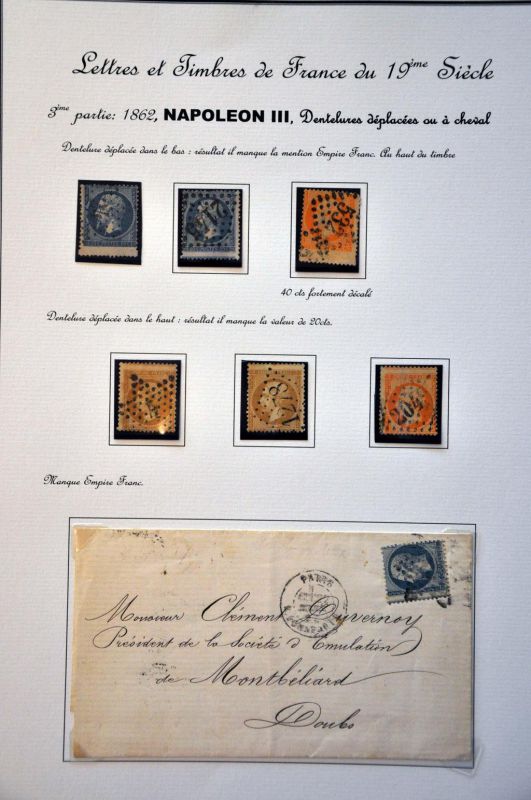 Lettres et Timbres de France du 19ème Siècle
3ème partie: 1862, NAPOLEON III, Dentelures déplacées ou à cheval
Dentelure déplacée dans le bas : résultat il manque la mention Empire Franc. Au haut du timbre
40 cts fortement décalé
Dentelure déplacée dans le haut : résultat il manque la valeur de 20cts.
1218
204
Manque Empire Franc.
PARIS
Monsieur Clément Duvernoy
Président de la Société d'Emulation
de Montbéliard
Doubs